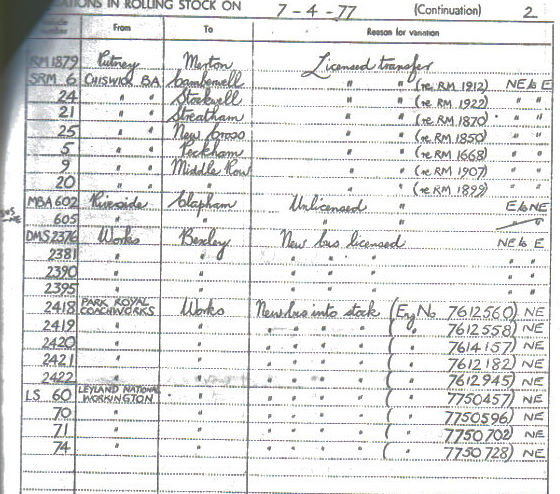 ATIONS IN ROLLING STOCK ON 7-4-77 (Continuation) 2
number From To Reason for variation
RM 1879 Putney Merton Licensed transfer
SRM 6 CHISWICK BA Camberwell " " (re RM 1912) NE to E
24 " " Stockwell " " (re RM 1922) " "
21 " " Streatham " " (re RM 1870) " "
25 " " New Cross " " (re RM 1850) " "
5 " " Peckham " " (re RM 1668) " "
9 " " Middle Row " " (re RM 1907) " "
20 " " " " " (re RM 1899) " "
MBA 602 Riverside Clapham Unlicensed " E to NE
605 " " " "
DMS 2376 Works Bexley New bus licensed NE to E
2381 " " " " " " "
2390 " " " " " " "
2395 " " " " " " "
2418 PARK ROYAL COACHWORKS Works New bus into stock (Eng No 7612560) NE
2419 " " " " " " ( " 7612558) NE
2420 " " " " " " ( " 7614157) NE
2421 " " " " " " ( " 7612182) NE
2422 " " " " " " ( " 7612945) NE
LS 60 LEYLAND NATIONAL WORKINGTON " " " " " ( " 7750457) NE
70 " " " " " " ( " 7750596) NE
71 " " " " " " ( " 7750702) NE
74 " " " " " " ( " 7750728) NE